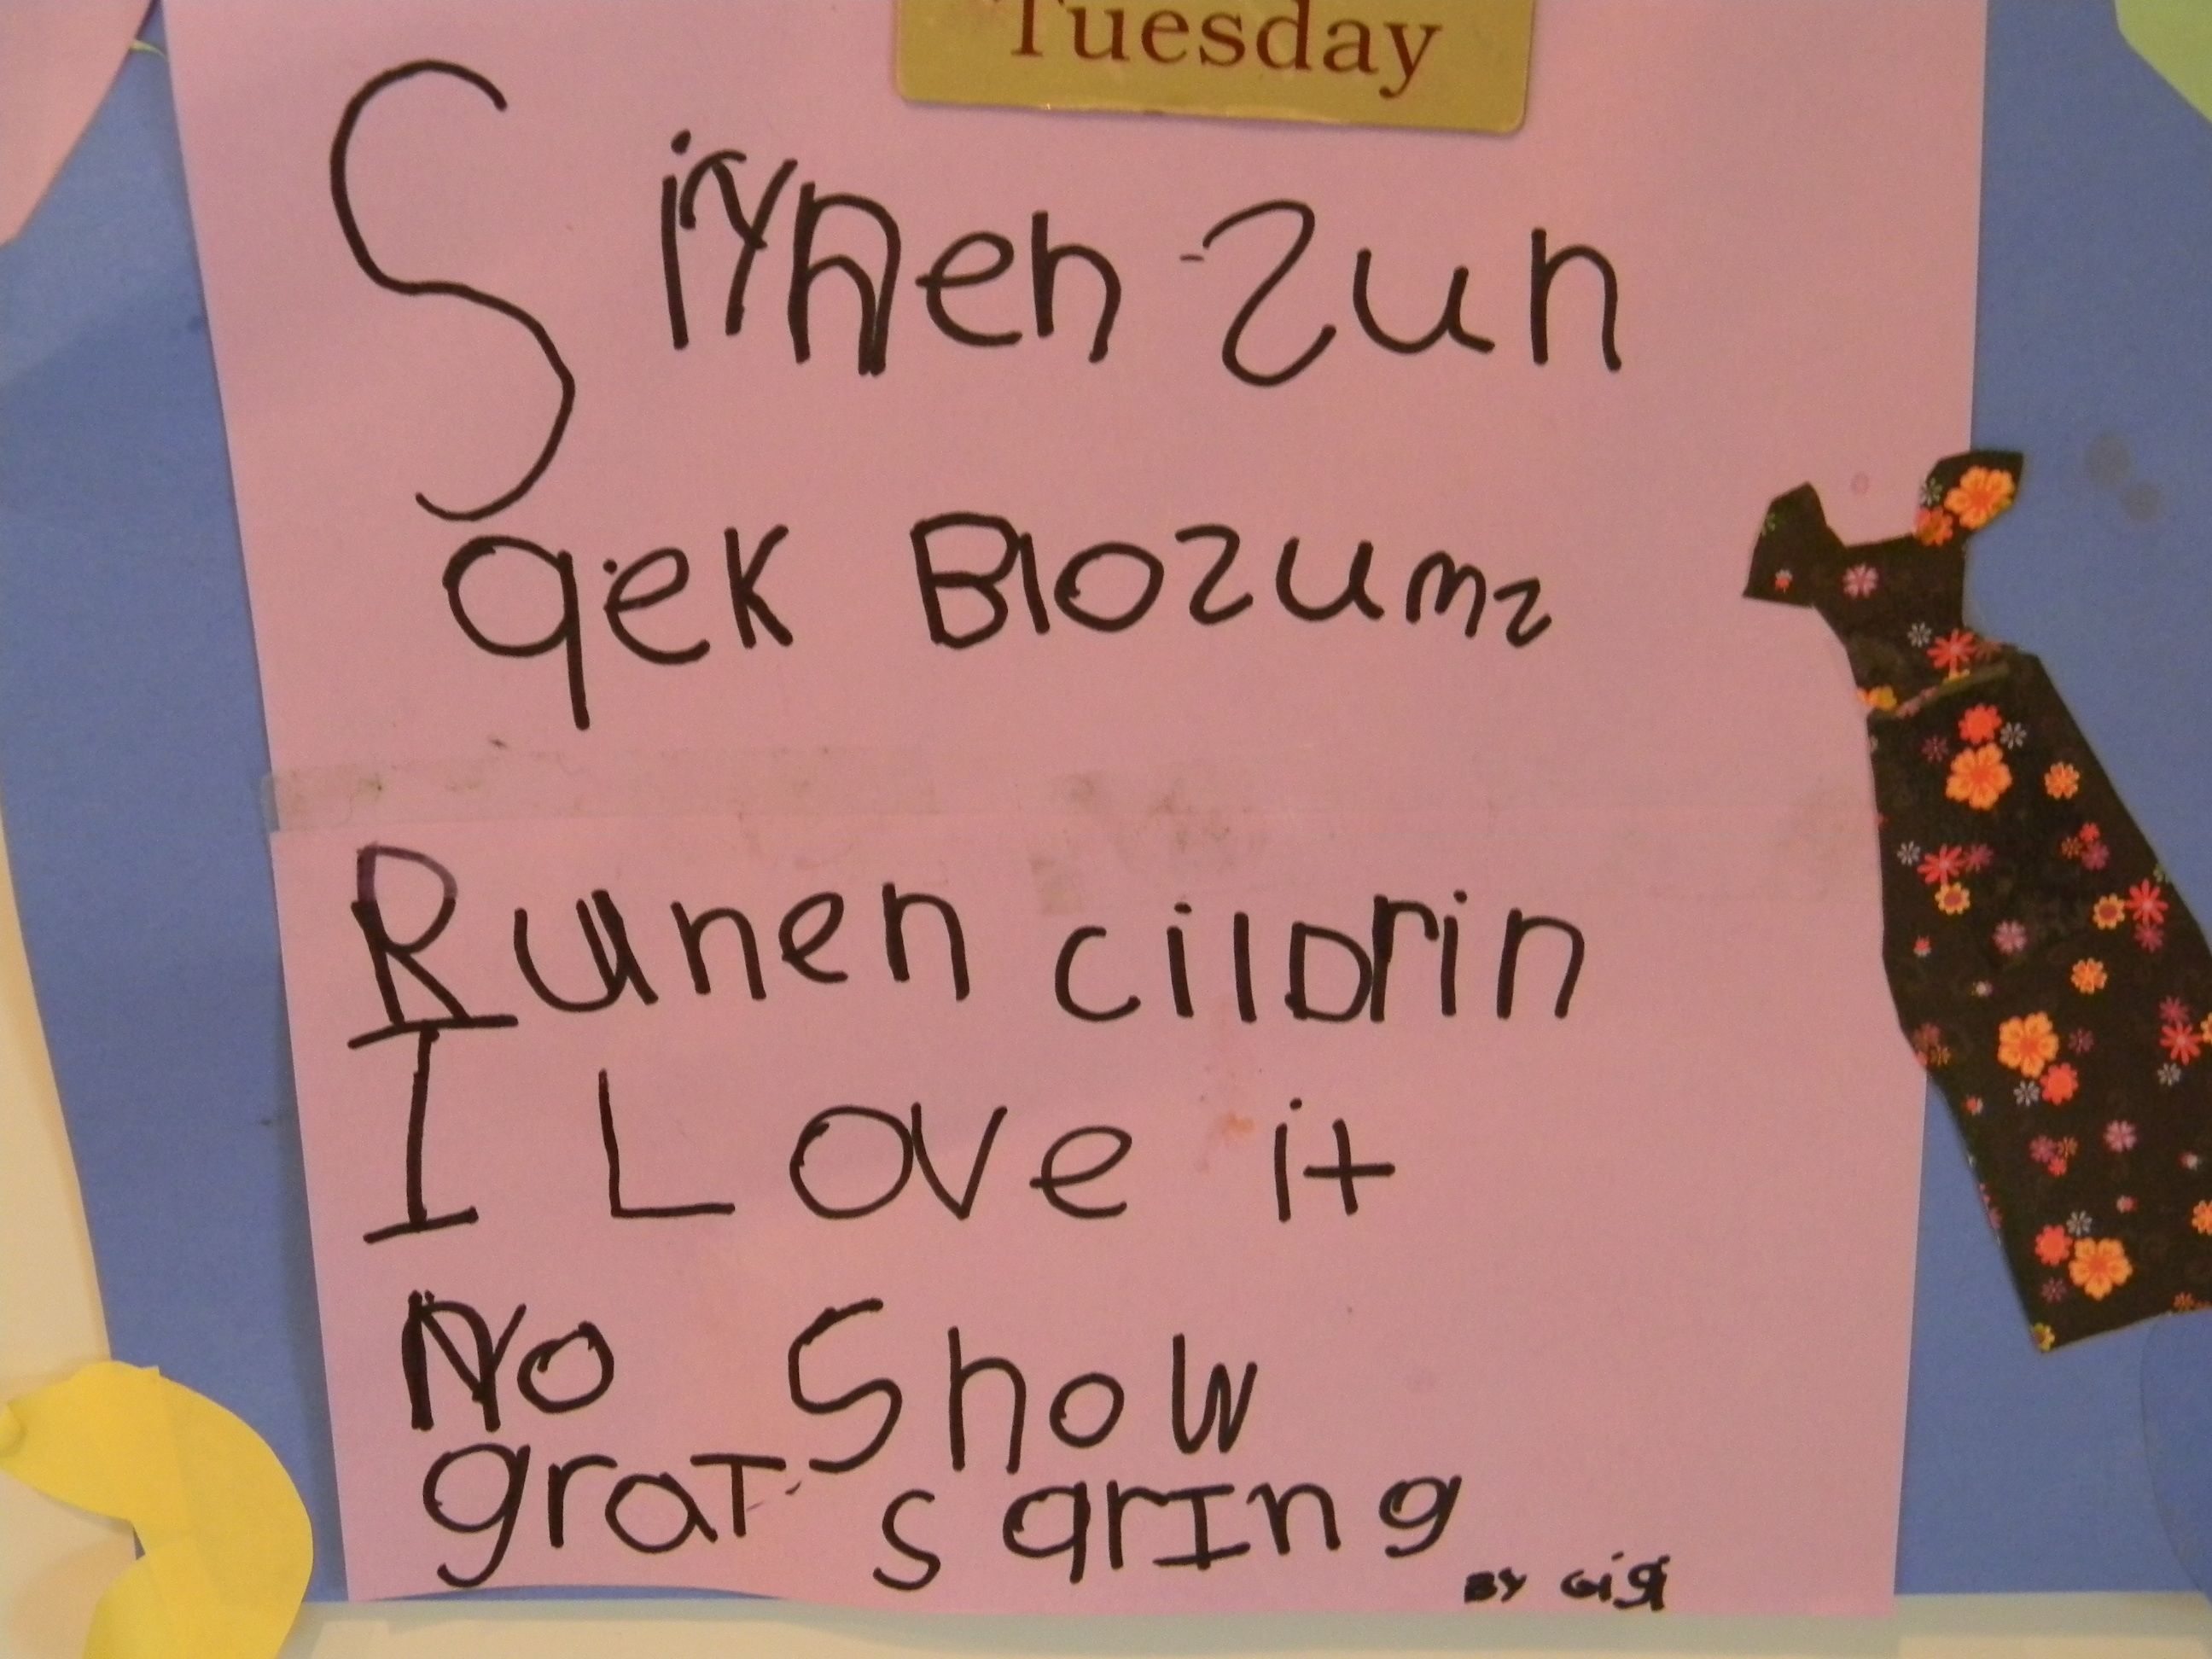 Tuesday
Siynen zun
qek Blozumz
Runen cilDrin
I Love it
No Show
graT sqrIng
BY Gigi